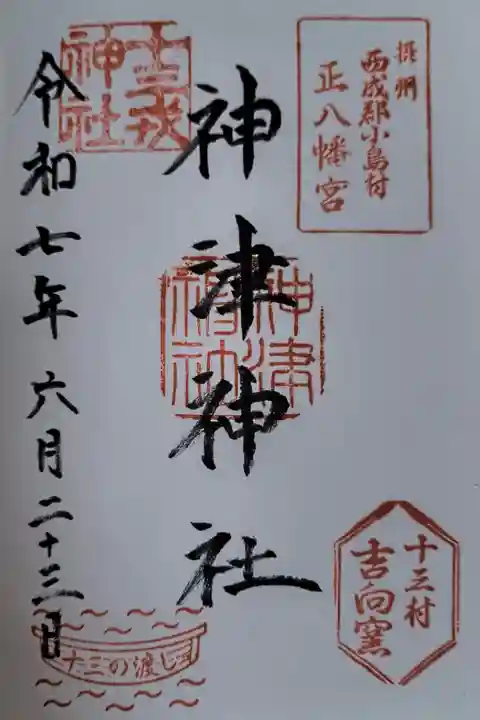 摂州
西成郡小島村
正八幡宮
神津神社
神津
神社
十三村
吉向窯
十三戎
神社
令和七年六月二十三日
十三の渡し